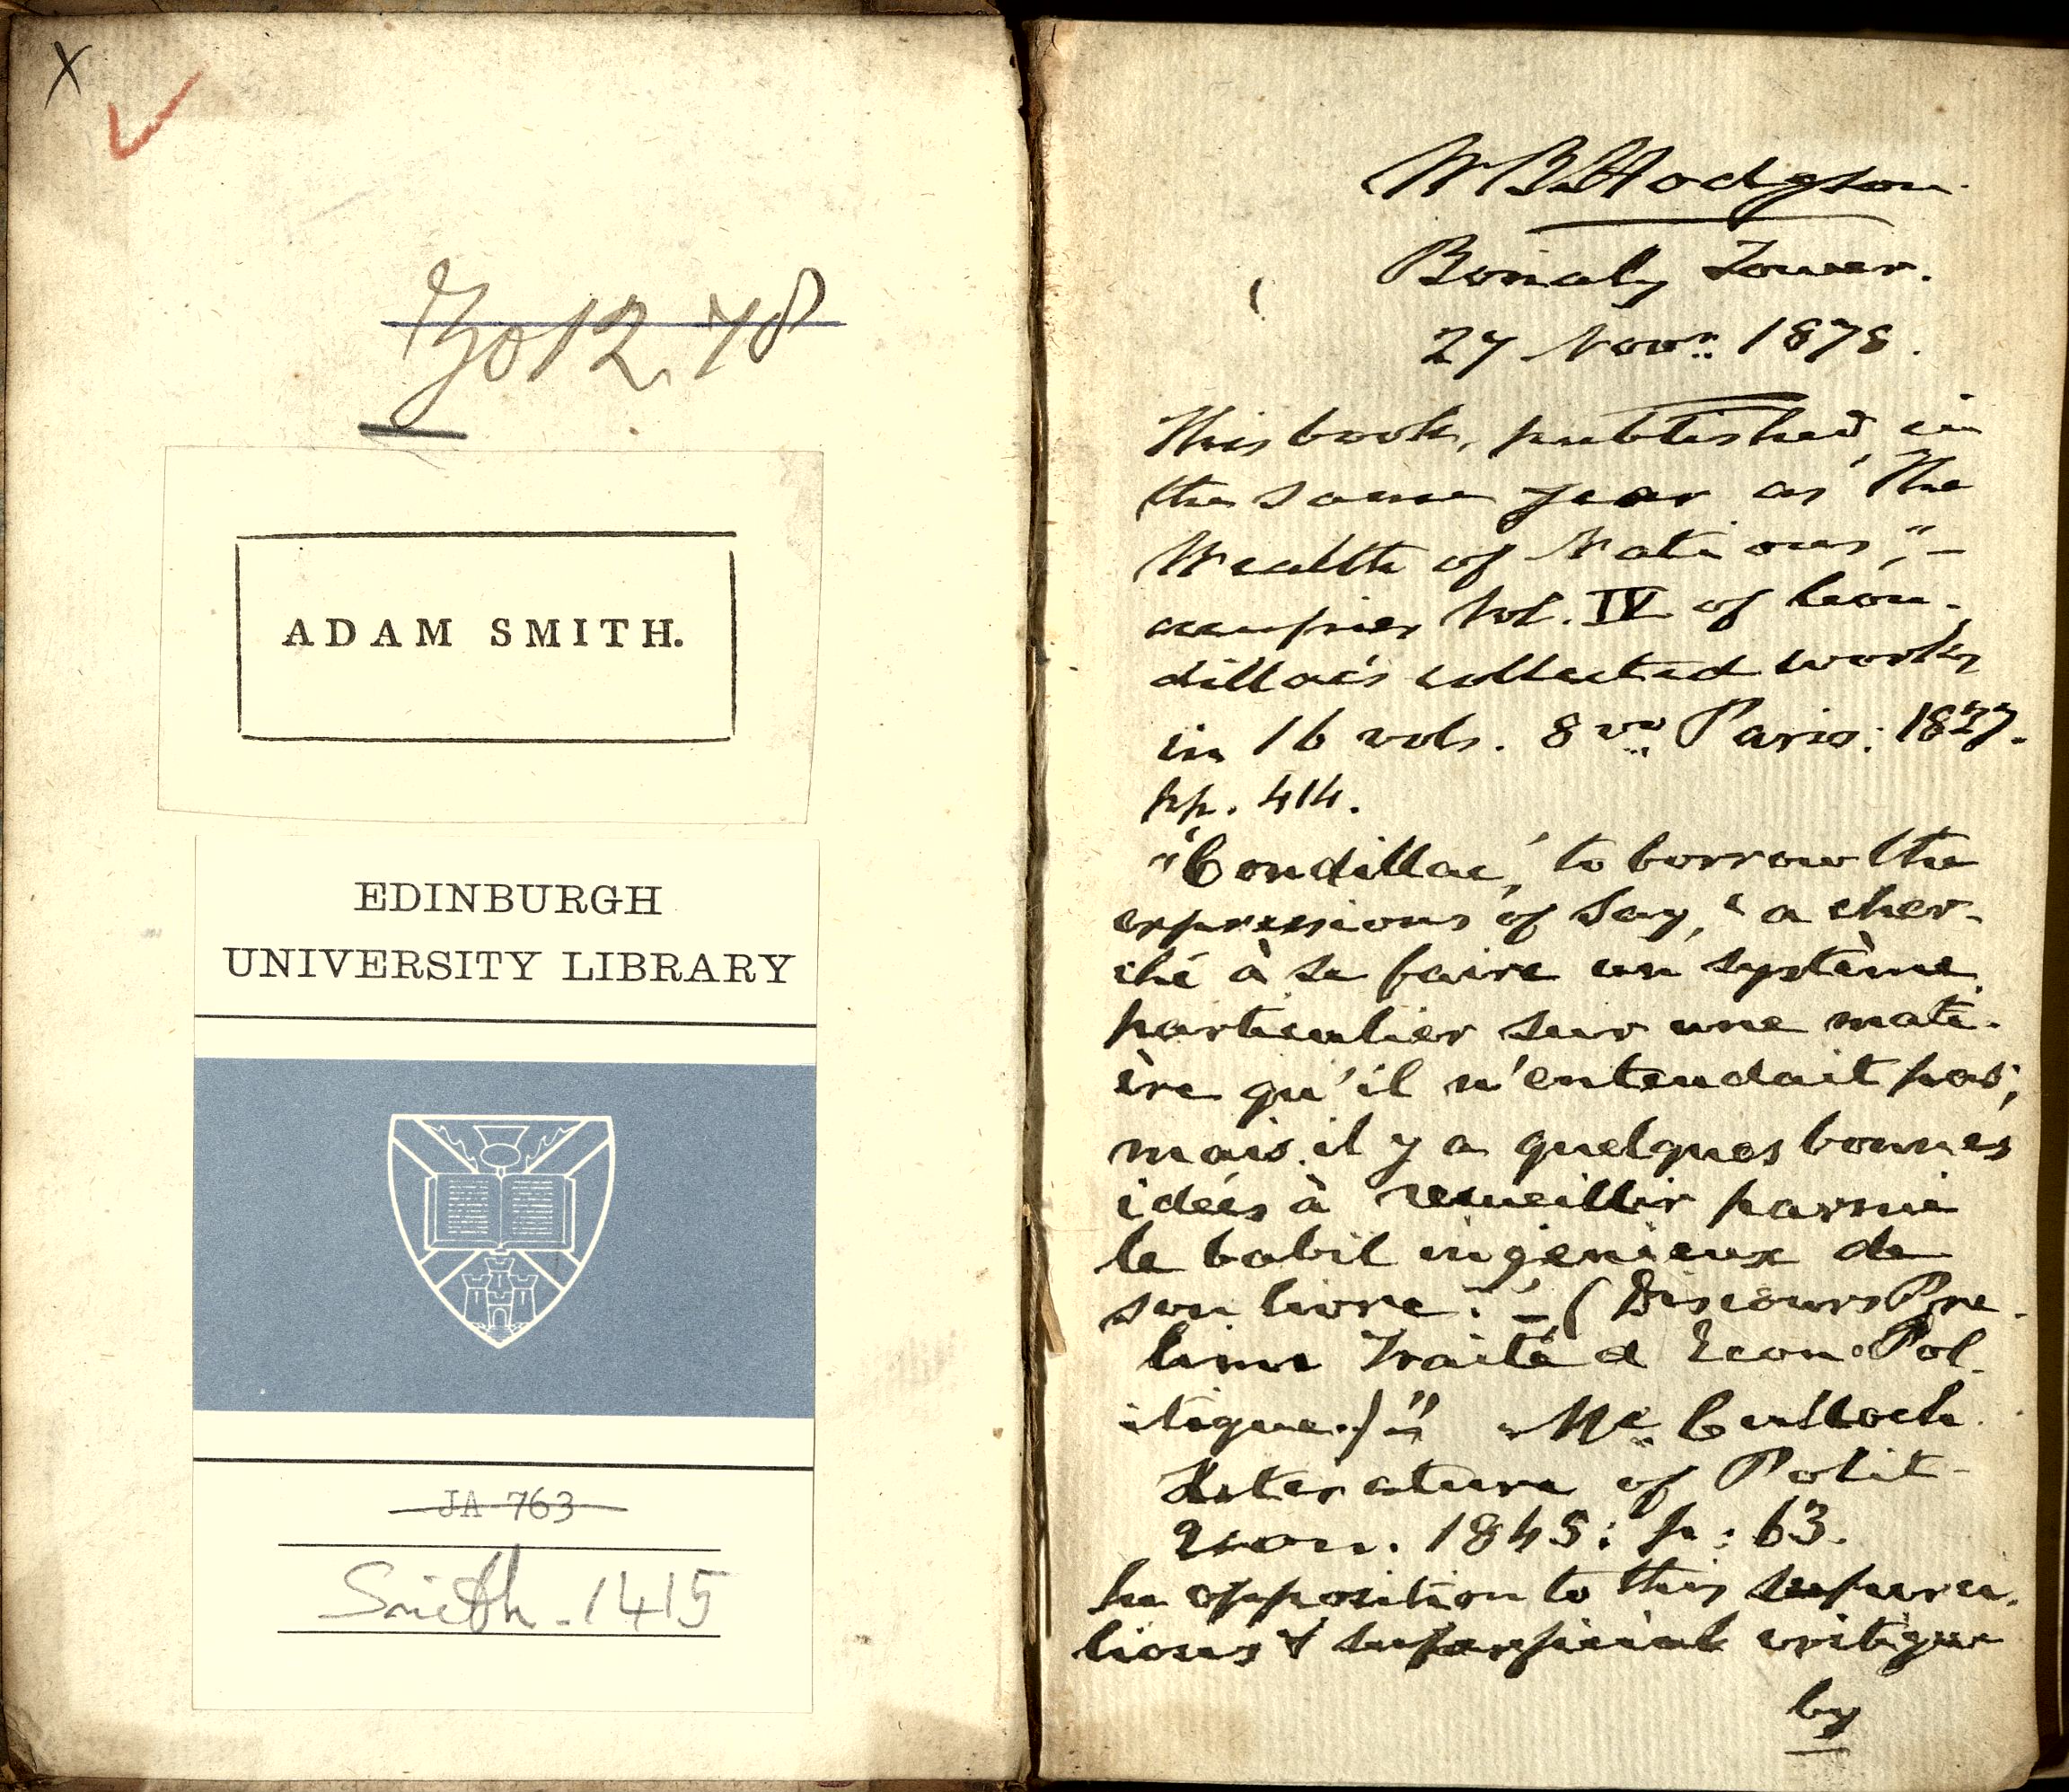 X
ADAM SMITH.
EDINBURGH
UNIVERSITY LIBRARY
JA 763
Smith. 1415
W B Hodgson.
Bonaly Tower.
27 Novr. 1878.
This book, published, in
the same year as "The
Wealth of Nations", –
occupies Vol. IV of Con-
dillac's collected works
in 16 vols. 8vo Paris: 1827.
pp. 414.
"'Condillac,' to borrow the
expressions of Say, 'a cher-
ché à se faire un système
particulier sur une mati-
ère qu'il n'entendait pas;
mais il y a quelques bonnes
idées à recueillir parmi
le babil ingénieux de
son livre.' – (Discours Pre-
limr Traité d Econ: Pol-
itique.)" McCulloch
Literature of Polit
Econ. 1845: p: 63.
In opposition to this superci-
lious & superficial critique
by